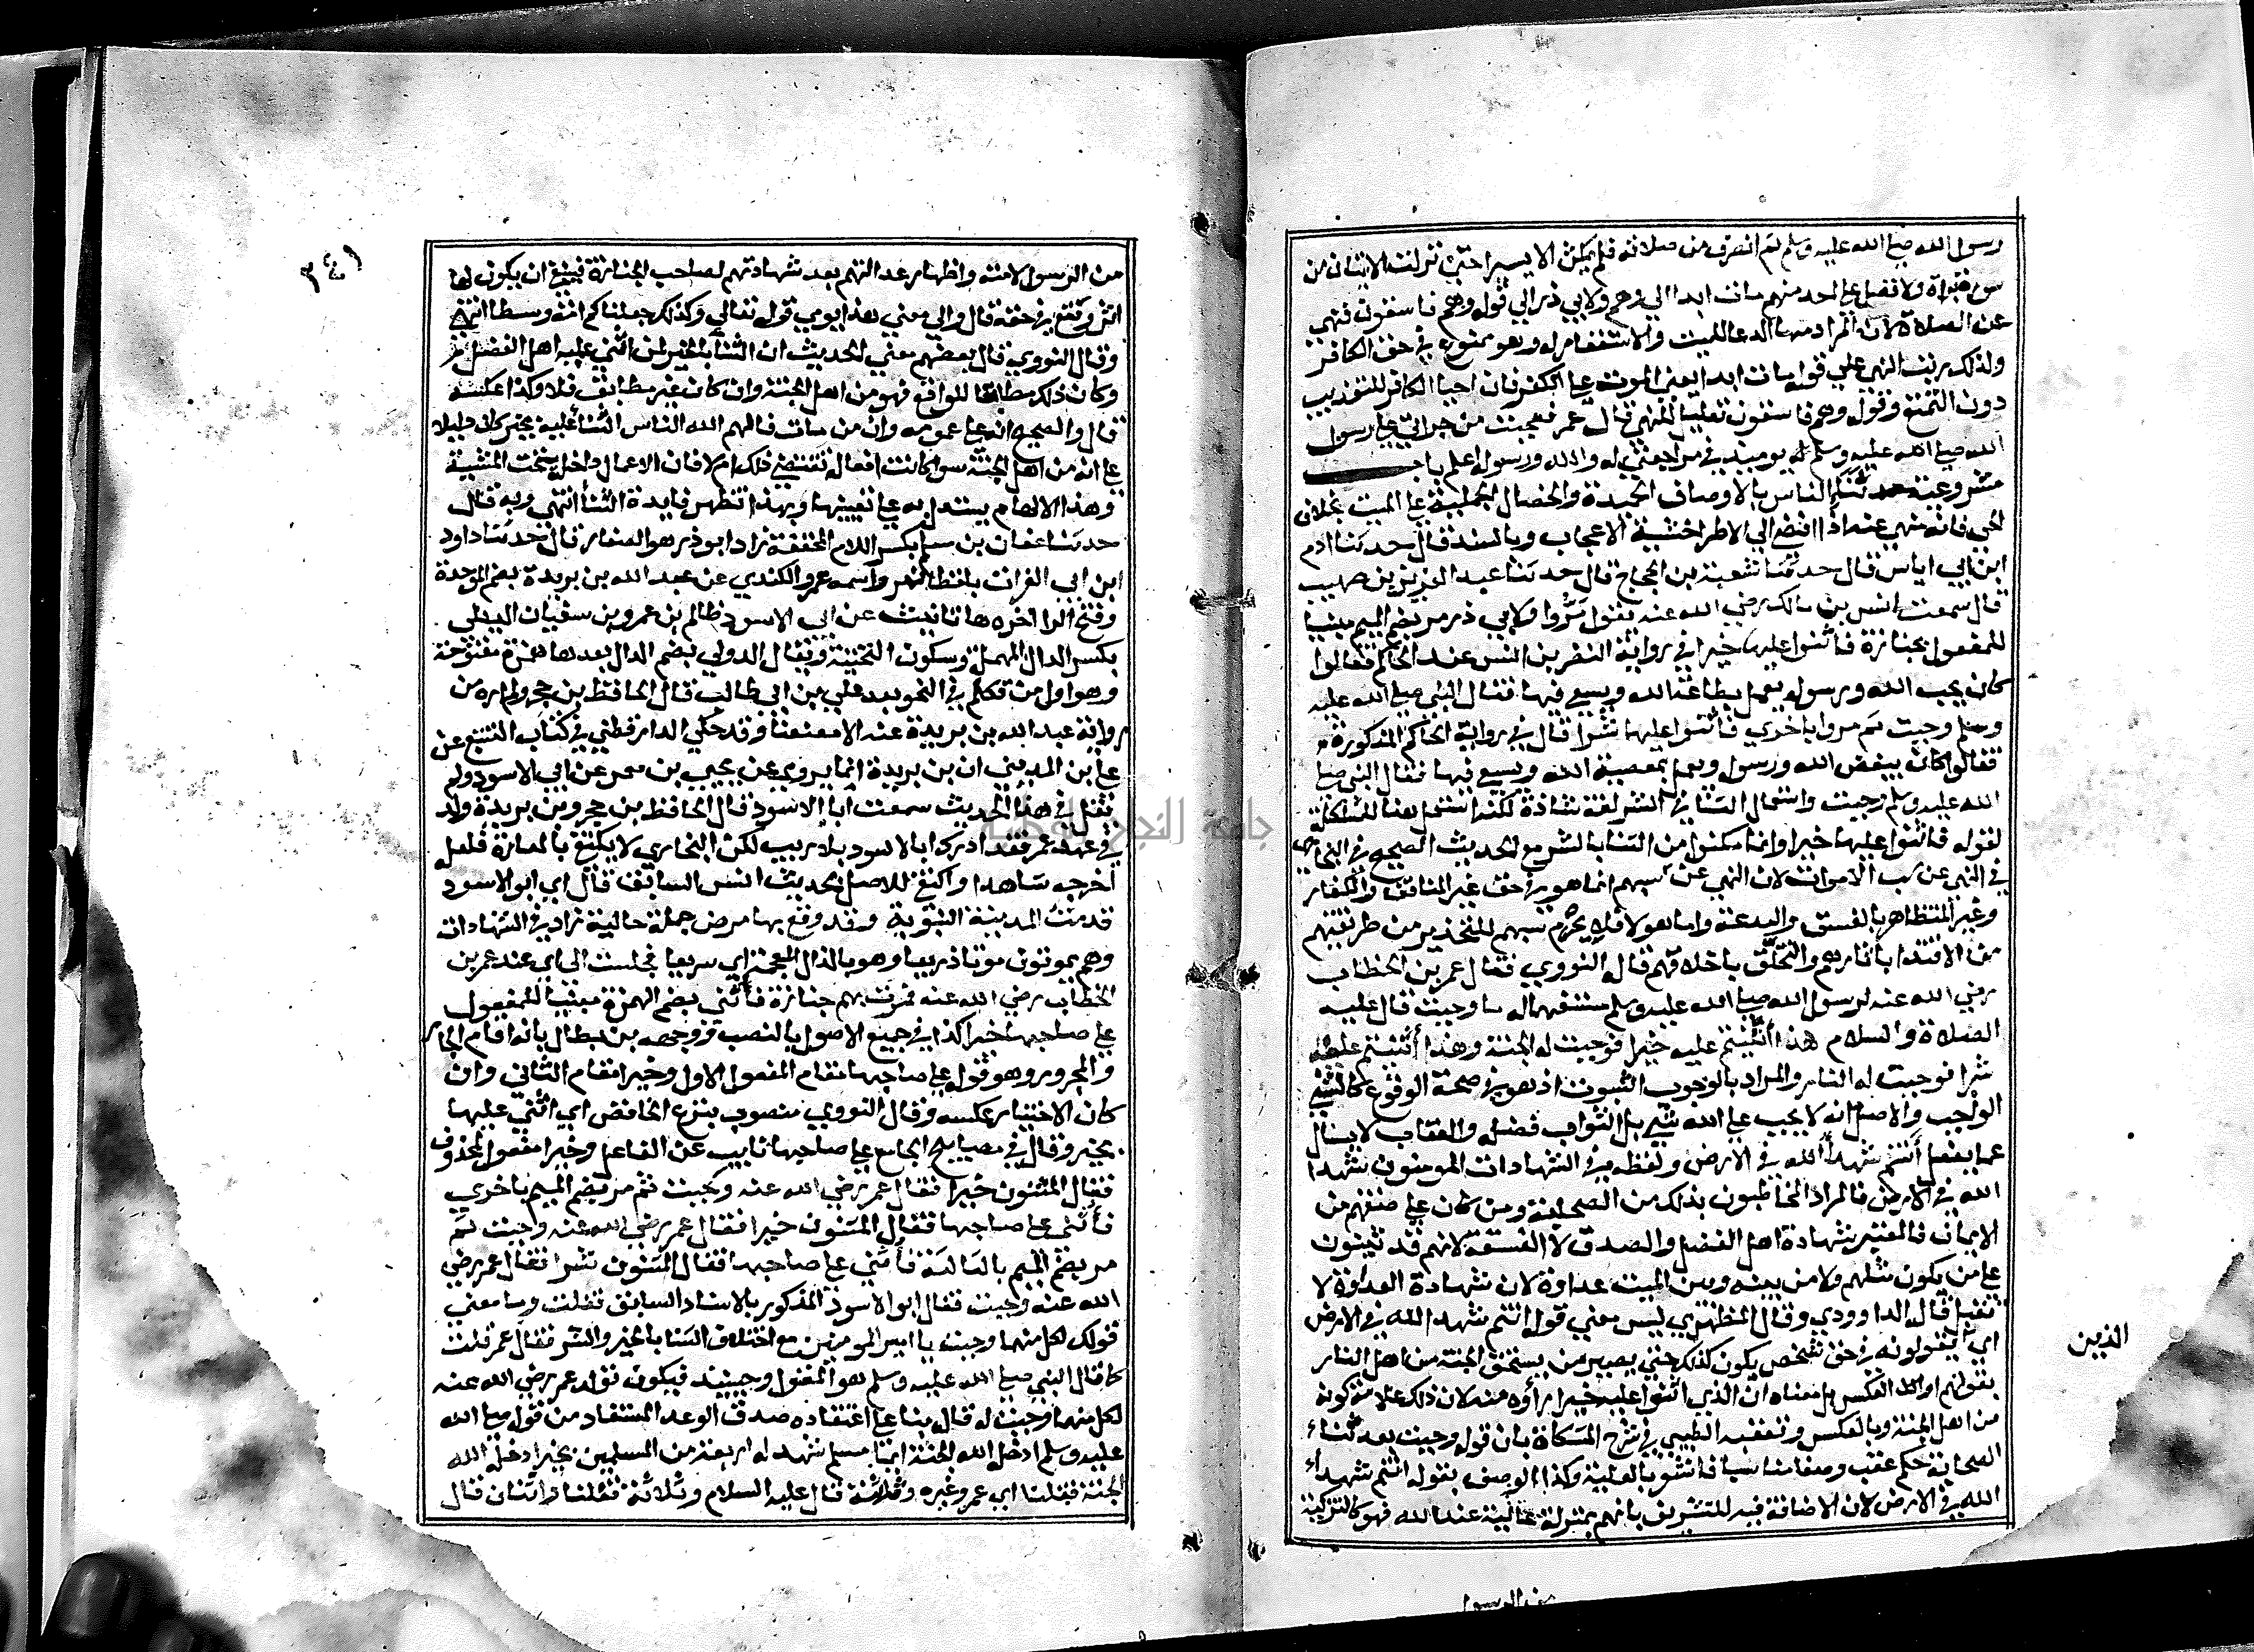 رسول الله صلي الله عليه وسلم ثم انصرف من صلاته فلم يمكث الا يسيرا حتي نزلت الايتان من
سورة براة ولا تصل علي احد منهم مات ابدا الي وهم ولابي ذر الي قوله وهم فاسقون فنهي
عن الصلاة لان المراد منها الدعا للميت والاستغفار له وهو ممنوع في حق الكافر
ولذلك رتب النهي علي قوله مات ابدا يعني الموت علي الكفر فان احيا الكافر للتعذيب
دون التمتع وقوله وهم فاسقون تعليل للنهي قال عمر فعجبت من جراتي علي رسول
الله صلي الله عليه وسلم يوميذ في مراجعتي له والله ورسوله اعلم باب
مشروعية ثنا الناس بالاوصاف الحميدة والخصال الجميلة علي الميت بخلاف
الحي فانه منهي عنه اذا افضي الي الاطرا خشية الاعجاب وبالسند قال حدثنا ادم
ابن ابي اياس قال حدثنا شعبة بن الحجاج قال حدثنا عبد العزيز بن صهيب
قال سمعت انس بن مالك رضي الله عنه يقول مروا ولابي ذر مر بضم الميم مبنيا
للمفعول بجنازة فاثنوا عليها خيرا في رواية النضر بن انس عند الحاكم فقالوا
كان يحب الله ورسوله يعمل بطاعة الله ويسعي فيها فقال النبي صلي الله عليه
وسلم وجبت ثم مروا باخري فاثنوا عليها شرا قال في رواية الحاكم المذكورة
فقالوا كان يبغض الله ورسوله ويعمل بمعصية الله ويسعي فيها فقال النبي صلي
الله عليه وسلم وجبت واستعمال الثنا في الشر لغة شاذة لكنه استعمل هنا للمشاكلة
لقوله فاثنوا عليها خيرا وانما مكنوا من الثنا بالشر مع الحديث الصحيح في البخاري
في النهي عن سب الاموات لان النهي عن سبهم انما هو في حق غير المنافق والكفار
وغير المتظاهر بالفسق والبدعة واما هولا فلا يحرم سبهم للتحذير من طريقتهم
من الاقتدا باثارهم والتخلق باخلاقهم قاله النووي فقال عمر بن الخطاب
رضي الله عنه لرسول الله صلي الله عليه وسلم مستفهما له ما وجبت قال عليه
الصلاة والسلام هذا اثنيتم عليه خيرا فوجبت له الجنة وهذا اثنيتم عليه
شرا فوجبت له النار والمراد بالوجوب الثبوت اذ هو في صحة الوقوع كالشي
الواجب والاصل انه لا يجب علي الله شي بل الثواب فضله والعقاب لا يسال
عما يفعل انتم شهدا الله في الارض ولفظه في الشهادات المومنون شهدا
الله في الارض فالمراد المخاطبون بذلك من الصحابة ومن كان علي صفتهم من
الايمان فالمعتبر شهادة اهل الفضل والصدق لا الفسقة لانهم قد يثنون
علي من يكون مثلهم ولا من بينه وبين الميت عداوة لان شهادة العداوة لا
تقبل قاله الداوودي وقال المظهري ليس معني قوله انتم شهدا الله في الارض
اي يقولونه في حق شخص يكون كذلك حتي يصير من يستحق الجنة من اهل النار
بقولهم او العكس بل معناه ان الذي اثنوا عليه خيرا راوه منه لان ذلك علامة كونه
من اهل الجنة وبالعكس وتعقبه الطيبي في شرح المشكاة بان قوله وجبت بعد ثناء
الصحابة حكم عقب وصفا مناسبا فاشعر بالعلية وكذا الوصف بقوله انتم شهداء
الله في الارض لان الاضافة فيه للتشريف بانهم بمنزلة عالية عند الله فهو كالتزكية
الذين
من الرسول
من الرسول لامته واظهار عدالتهم بعد شهادتهم لصاحب الجنازة فينبغي ان يكون لها
اثر ونفع في حقه قال والي معني هذا يومي قوله تعالي وكذلك جعلناكم امة وسطا انتهي
وقال النووي قال بعضهم معني الحديث ان الثنا بالخير لمن اثني عليه اهل الفضل
وكان ذلك مطابقا للواقع فهو من اهل الجنة وان كان غير مطابق فلا وكذا عكسه
قال والصحيح انه علي عمومه وان من مات فالهم الله الناس الثنا عليه بخير كان دليلا
علي انه من اهل الجنة سوا كانت افعاله تقتضي ذلك ام لا فان الاعمال داخلة تحت المشية
وهذا الالهام يستدل به علي تعيينها وبهذا تظهر فايدة الثنا انتهي وبه قال
حدثنا عفان بن مسلم بكسر اللام المخففة زاد ابو ذر هو الصفار قال حدثنا داود
ابن ابي الفرات بلفظ النهر واسمه عمرو الكندي عن عبد الله بن بريدة بضم الموحدة
وفتح الرا اخره ها تانيث عن ابي الاسود ظالم بن عمرو بن سفيان الديلي
بكسر الدال المهملة وسكون التحتية ويقال الدولي بضم الدال بعدها همزة مفتوحة
وهو اول من تكلم في النحو بعد علي بن ابي طالب قال الحافظ بن حجر ولم اره من
رواية عبد الله بن بريدة عنه الا معنعنا وقد حكي الدارقطني في كتاب التتبع عن
علي بن المديني ان بن بريدة انما يروي عن يحيي بن معمر عن ابي الاسود ولم
يقل في هذا الحديث سمعت ابا الاسود قال الحافظ بن حجر وبن بريدة ولد
في عهد عمر فقد ادرك ابا الاسود بلا ريب لكن البخاري لا يكتفي بالمعاصرة فلعله
اخرجه شاهدا واكتفي للاصل بحديث انس السابق قال اي ابو الاسود
قدمت المدينة النبوية وقد وقع بها مرض جملة حالية زاد في الشهادات
وهم يموتون موتا ذريعا وهو بالذال المعجمة اي سريعا فجلست الي اي عند عمر بن
الخطاب رضي الله عنه فمرت بهم جنازة فاثني بضم الهمزة مبنيا للمفعول
علي صاحبها خيرا كذا في جميع الاصول بالنصب ووجهه بن بطال بانه اقام الجار
والمجرور وهو قوله علي صاحبها مقام المفعول الاول وخيرا مقام الثاني وان
كان الاختيار عكسه وقال النووي منصوب بنزع الخافض اي اثني عليها
بخير وقال في مصابيح الجامع علي صاحبها نايب عن الفاعل وخيرا مفعول لمحذوف
فقال المثنون خيرا فقال عمر رضي الله عنه وجبت ثم مر بضم الميم باخري
فاثني علي صاحبها فقال المثنون خيرا فقال عمر رضي الله عنه وجبت ثم
مر بضم الميم بالثالثة فاثني علي صاحبها فقال المثنون شرا فقال عمر رضي
الله عنه وجبت فقال ابو الاسود المذكور بالاسناد السابق فقلت وما معني
قولك لكل منهما وجبت يا امير المومنين مع اختلاف الثنا بالخير والشر فقال عمر قلت
كما قال النبي صلي الله عليه وسلم هو المقول وحينيذ فيكون قول عمر رضي الله عنه
لكل منهما وجبت له قال بنا علي اعتقاده صدق الوعد المستفاد من قوله صلي الله
عليه وسلم ادخله الله الجنة ايما مسلم شهد له اربعة من المسلمين بخير ادخله الله
الجنة فقلنا اي عمر وغيره وثلاثة قال عليه السلام وثلاثة فقلنا واثنان قال
جامعة النجاح الوطنية